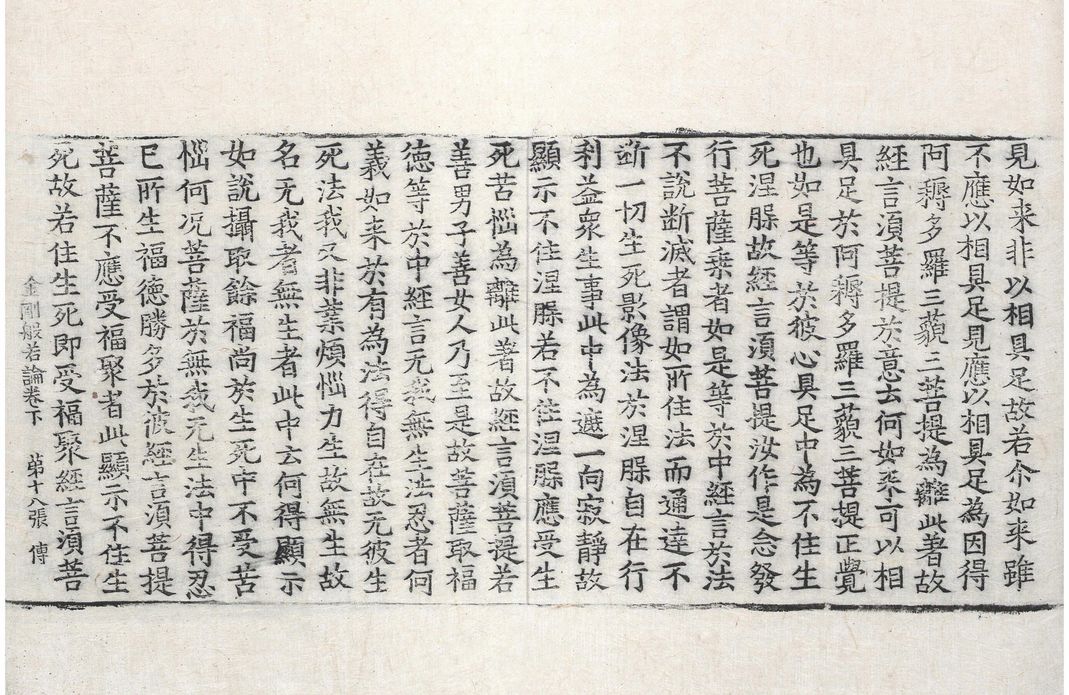 見如来非以相具足故若尒如来雖
不應以相具足見應以相具足為因得
阿耨多羅三藐三菩提為離此著故
經言湏菩提於意云何如来可以相
具足於阿耨多羅三藐三菩提正覺
也如是等於彼心具足中為不住生
死涅槃故經言湏菩提汝作是念發
行菩薩乗者如是等於中經言於法
不說断滅者謂如所住法而通達不
断一切生死影像法於涅槃自在行
利益衆生事此中為遮一向寂靜故
顯示不住涅槃若不住涅槃應受生
死苦惱為離此著故經言湏菩提若
善男子善女人乃至是故菩薩取福
德等於中經言无我無生法忍者何
義如来於有為法得自在故无彼生
死法我又非業煩惱力生故無生故
名无我者無生者此中云何得顯示
如說攝取餘福尚於生死中不受苦
惱何况菩薩於無我无生法中得忍
已所生福德勝多於彼經言湏菩提
菩薩不應受福聚者此顯示不住生
死故若住生死即受福聚經言湏菩
金剛般若論卷下 苐十八張 傳